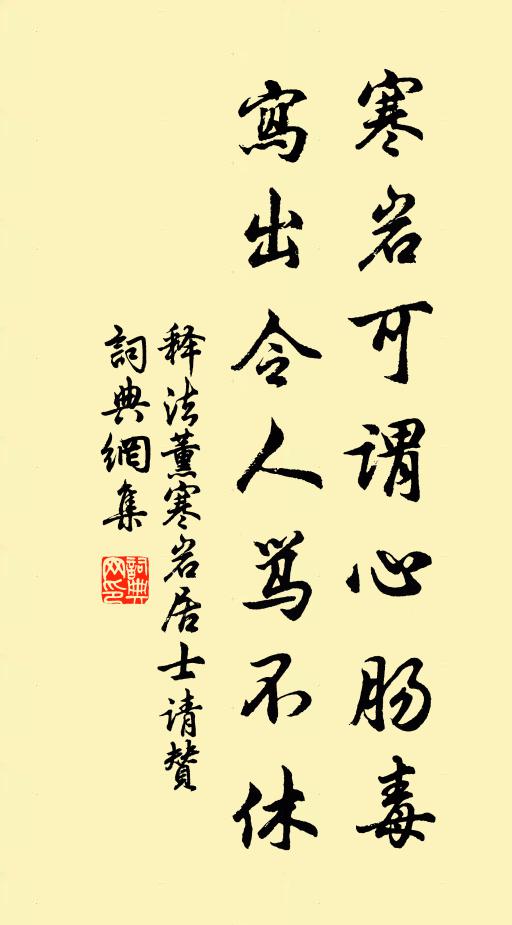 寒岩可谓心肠毒
寫出令人骂不休
释法薰寒岩居士请贊
詞典網集
詞典网印